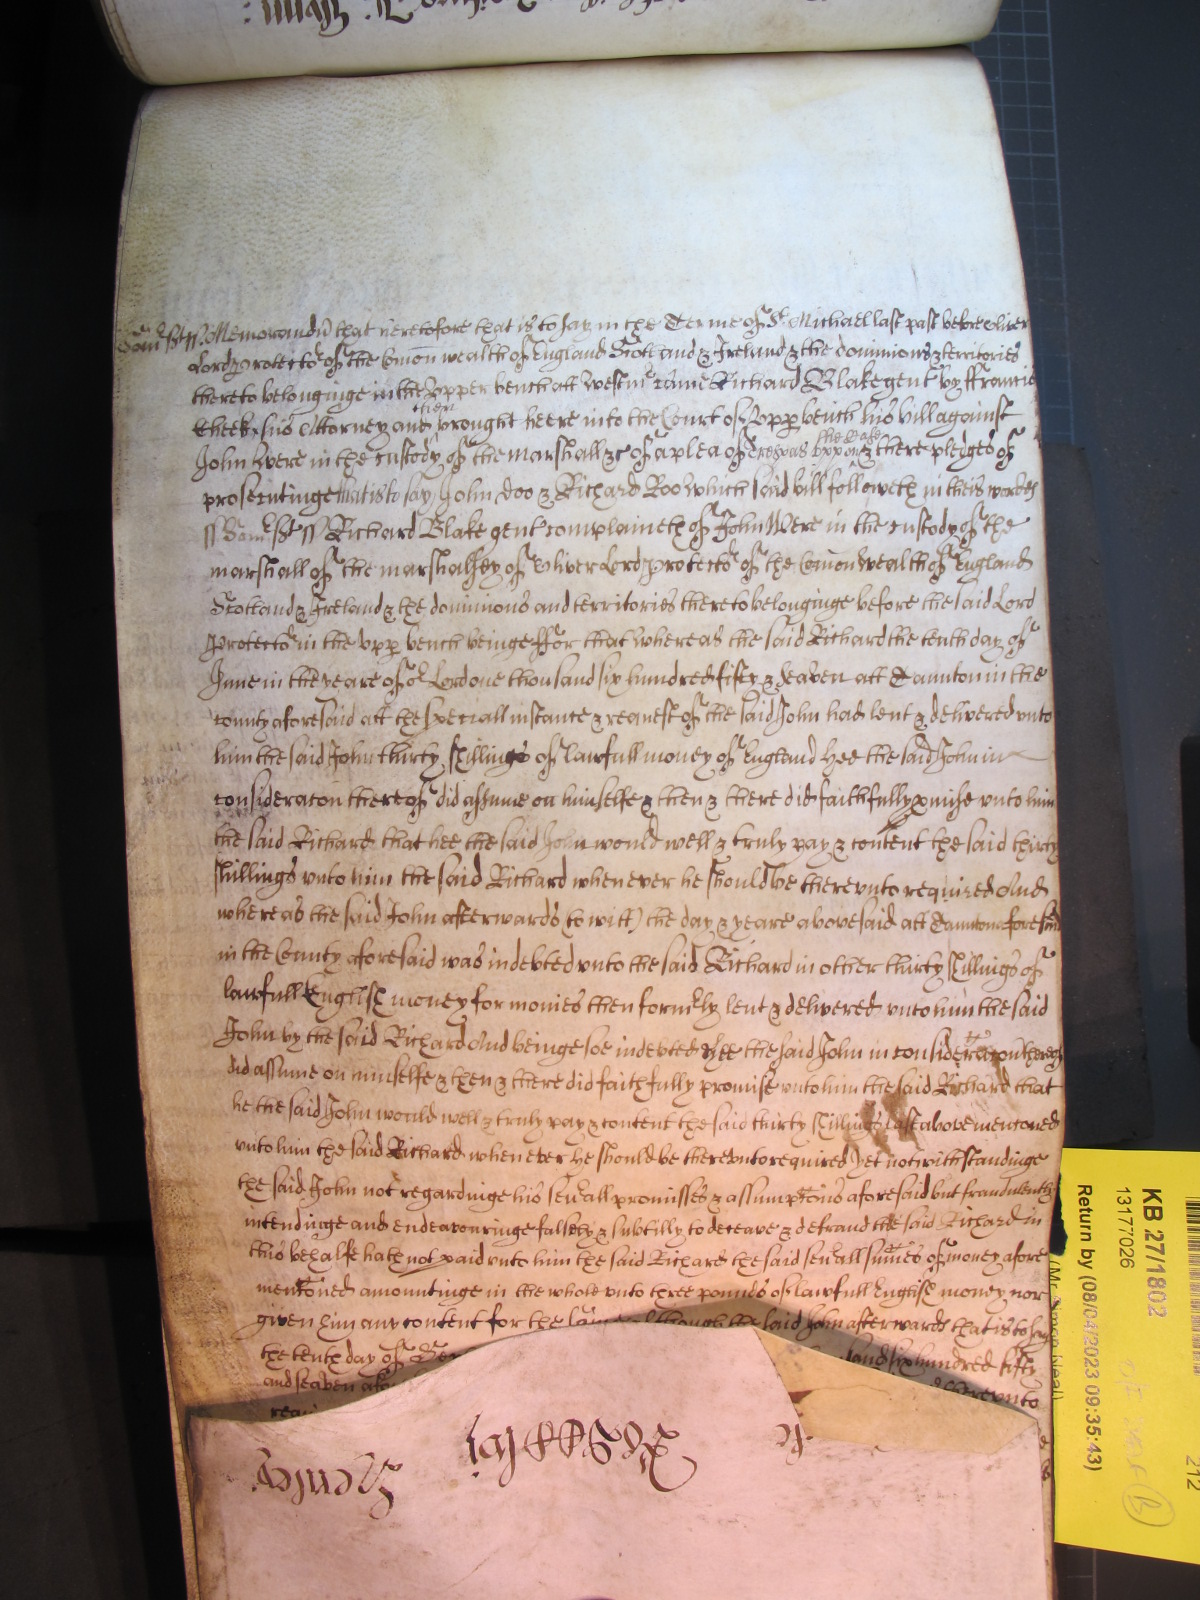 Som̃st ss Memorandũ that heretofore that is to say in the Terme of St Michael last past before Oliver
Lord Protector of the Com̃on wealth of England Scotland & Ireland & the dominions & territories
thereto belonginge in the Upper bench att Westmr came Richard Blake gent by ffrancis
Cheeke his Attorney and then brought heere into the Court of Upp bench his bill against
John Were in the custody of the marshall &c of a plea of trespas upon the Case & there pledges of
prosecutinge that is to say John doo & Richard Roo which said bill followeth in theis wordes
ss Som̃st ss Richard Blake gent complaineth of John Were in the custody of the
marshall of the marshalsey of Oliver Lord Protector of the Com̃on Wealth of England
Scotland & Ireland & the dominions and territories thereto belonginge before the said Lord
Protector in the upp bench beinge ffor that Whereas the said Richard the tenth day of
June in the yeare of or Lord one thousand six hundred fifty & seaven att Taunton in the
county aforesaid att the speciall instance & request of the said John had lent & delivered unto
him the said John thirty shillings of lawfull money of England Hee the said John in
consideracon thereof did assume on himselfe & then & there did faithfully pmise unto him
the said Richard that hee the said John would well & truly pay & content the said thirty
shillings unto him the said Richard whenever he should be thereunto required And
whereas the said John afterwards (to witt) the day & yeare abovesaid att Taunton aforesaid
in the County aforesaid was indebted unto the said Richard in other thirty shillings of
lawfull English money for monies then formerly lent & delivered unto him the said
John by the said Richard And beinge soe indebted Hee the said John in consideracon thereof
did assume on himselfe & then & there did faithfully promise unto him the said Richard that
he the said John would well & truly pay & content the said thirty shillings last above mentoned
unto him the said Richard whenever he should be thereunto required Yet notwithstandinge
the said John not regardinge his seṽall promisses & assumptions aforesaid but fraudulently
intendinge and endeavouringe falsely & subtilly to deceave & defraud the said Richard in
this behalfe hath not paid unto him the said Richard the said seṽall sumes of money afore
mentoned amountinge in the whole unto three pounds of lawfull English money nor
given him any content for the same although the said John afterwards that is to say
the tenth day of
sand six hundred fifty
and seaven
thereunto
KB 27/1802
13177026
Return by (08/04/2023 09:35:43)
(Mr Simon Neal)
212